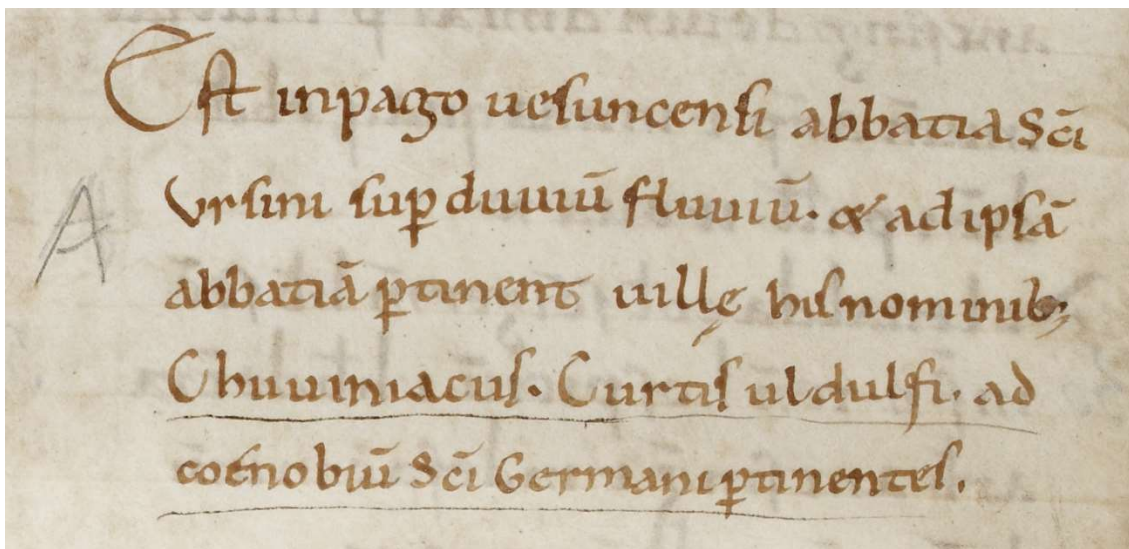 Est inpago uesuncensi abbatia Sc̄i
Ursini sup̱ duuiū fluuiū. & ad ipsā
A
abbatiā p̱tinent uillę his nominib;
Chuuiniacus. Curtis uldulfi. ad
coenobiū Sc̄i Germani p̱tinentes.